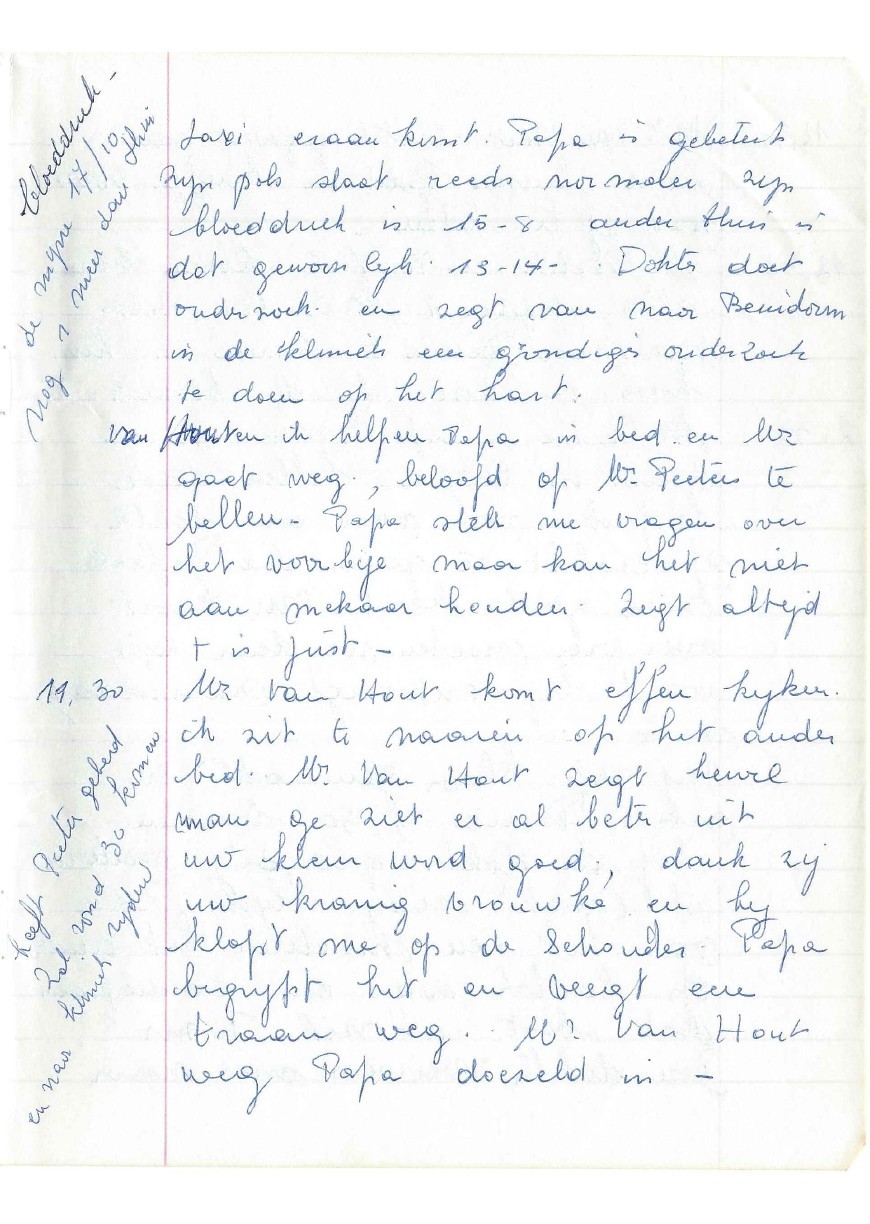 bloeddruk -
de mijne 17/10
nog 2 meer dan thuis
taxi eraan komt. Papa is gebeterd
zijn pols slaat reeds normaler zijn
bloeddruk is 15-8 ander thuis is
dat gewoonlijk 13-14- Dokter doet
onderzoek. en zegt van naar Benidorm
in de kliniek een grondige onderzoek
te doen op het hart.
van Hout en ik helpen Papa in bed. en Mr
gaat weg., beloofd op Mr. Peeters te
bellen - Papa stelt me vragen over
het voorbije maar kan het niet
aan mekaar houden. zegt altijd
t is just -
19,30 Mr Van Hout komt effen kijken.
ik zit te naaien op het ander
bed Mr. Van Hout zegt hewel
man ge ziet er al beter uit
uw kleur word goed., dank zij
uw kranig vrouwke en hij
klopt me op de schouder Papa
begrijpt het en veegt een
traan weg. Mr Van Hout
weg Papa doezeld in -
heeft Peeter gebeld
zal rond 30 komen
en naar kliniek rijden